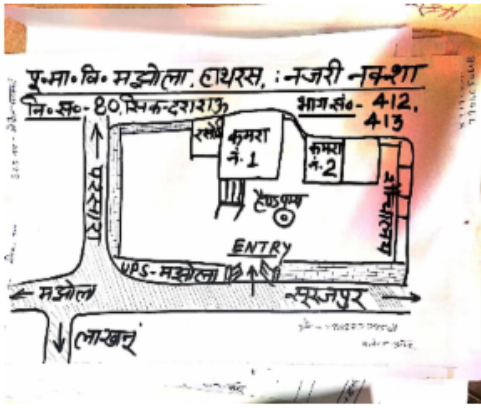 पू॰मा॰वि॰ मझोला, हाथरस, : नजरी नक्शा
वि॰ स॰- 80, सिकन्दराराऊ भाग सं॰- 412,
413
रसोई
कमरा
नं. 1
कमरा
नं. 2
शौचालय
हैण्डपम्प
परसारा
ENTRY
UPS-मझोला
मझोला
सूरजपुर
लाखनूं